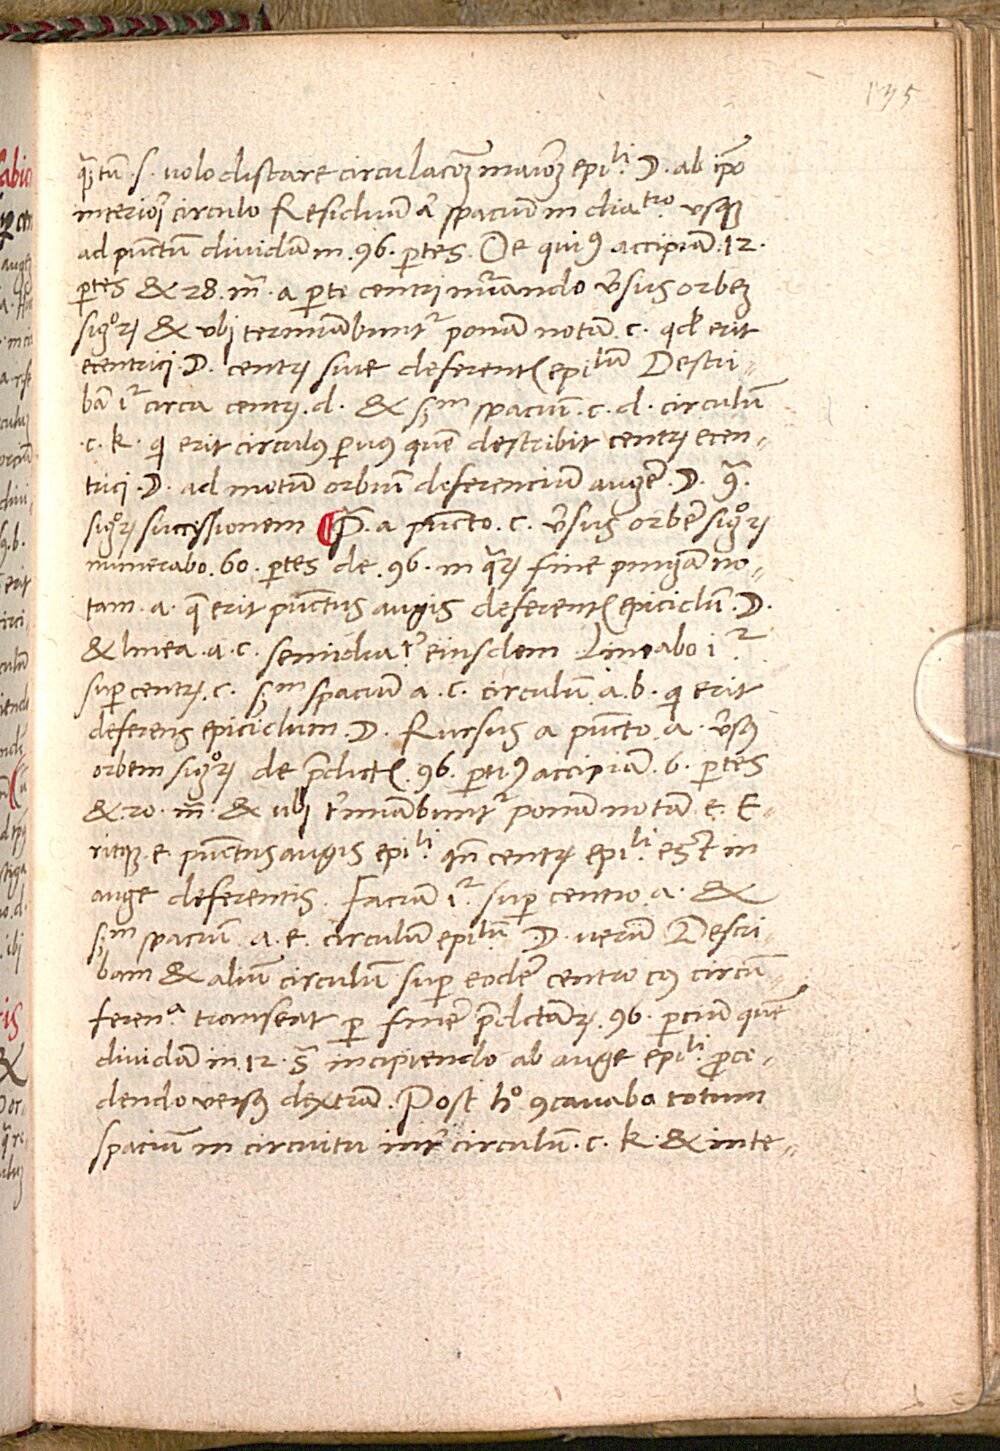 195
qꝫtū .s. volo distare circulacōꝫ maiorē epili D. ab ipō
interiori circulo Residuū aūt spacium in diatro usqꝫ
ad punctū dividā in .96. ptes. De quibꝰ accipiā .12.
ptes & 28. m̄. a pte centri nūando vsus orbeꝫ
signorꝫ & ubi terminābuntr ponā notā c. qd erit
ecentrici D. centrꝫ sive deferentis epilum Descri-
bā igr circa centrꝫ .d. & sꝫm spacium .c.d. circulum
.c.k. qi erit circulꝰ pvꝰ quē describit centrꝫ ecen-
trici .D. ad motum orbium deferencium augē .D. 9ᵃ.
signorꝫ successionem a puncto .c. vsus orbē signorꝫ
numerabo .60. ptes de .96. in qrꝫ fine pingā no-
tam .a. q̄ erit punctus augis deferentis epiciclum .D.
& linea .a.c. semidiatʳ eiusdem Lineabo ir
super centrꝫ .c. sꝫm spacium a.c. circulum .a.b. qi erit
deferens epiciclum .D. Rursus a puncto .a. vsꝰ
orbem signorꝫ de pdictis .96. ptibꝰ accipiā .6. ptes
& .20. m̄. & ubi tminābuntr ponā notā e. E-
ritqꝫ e punctus augis epili qn̄ centrꝫ epili est in
auge deferentis. Faciā ir sup centro a. &
sꝫm spacium .a.e. circulum epilum D. verum Descri-
bam & alium circulum sup eodē centro cꝰ circū-
ferena transeat p finē pdictarꝫ .96. pcium quē
dividā in .12. sa incipiendo ab auge epili proce-
dendo versꝰ dextrā. Post ho 9cavabo totum
spacium in circuitu intr circulum .c.k. & inte-